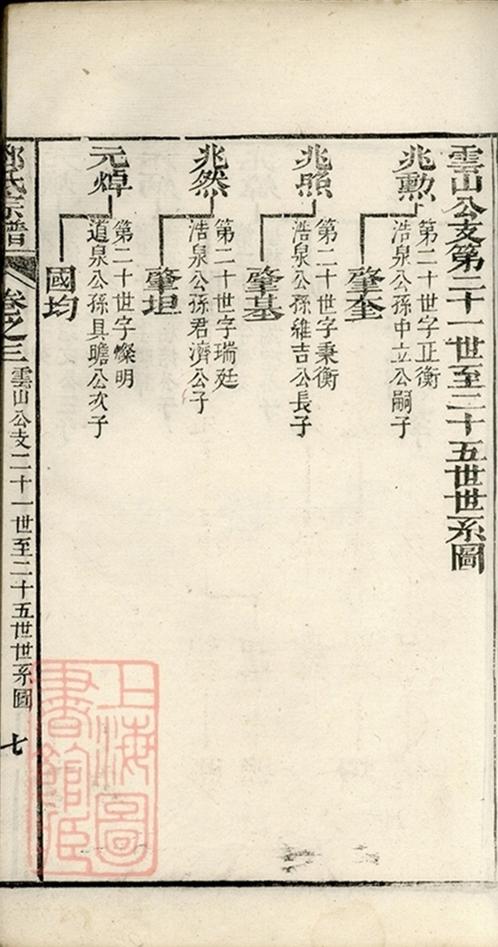 雲山公支第二十一世至二十五世世系圖
兆勲
第二十世字正衡
浩泉公孫中立公嗣子
肇奎
兆照
第二十世字秉衡
浩泉公孫維吉公長子
肇基
兆然
第二十世字瑞廷
浩泉公孫君濟公子
肇坦
元焯
第二十世字燦明
道泉公孫具瞻公次子
國均
氏宗譜
卷之三
雲山公支二十一世至二十五世世系圖
七
上海圖
書館藏